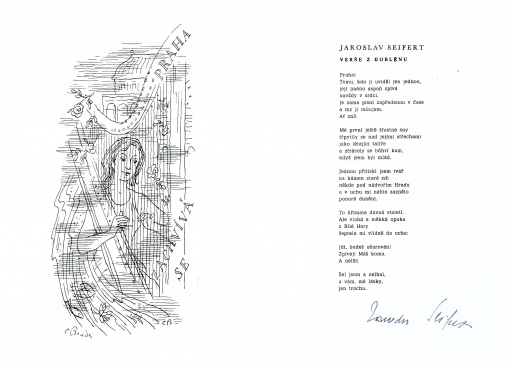 PRAHA
ZACHVÍVÁ
SE
JAROSLAV SEIFERT
VERŠE Z GOBLÉNU
Praho!
Tomu, kdo ji uviděl jen jednou,
její jméno aspoň zpívá
navždy v srdci.
Je sama písní zapředenou v čase
a my ji milujem.
Ať zní!
Mé první ještě šťastné sny
třpytily se nad jejími střechami
jako létající talíře
a ztrácely se bůhví kam,
když jsem byl mlád.
Jednou přitiskl jsem tvář
na kámen staré zdi
někde pod nádvořím Hradu
a v uchu mi náhle zaznělo
ponuré dunění.
To hřímala dávná století.
Ale vlahá a měkká opuka
z Bílé Hory
šeptala mi vlídně do ucha:
Jdi, budeš očarován!
Zpívej! Máš komu.
A nelži!
Šel jsem a nelhal,
a vám, mé lásky,
jen trochu.
Jaroslav Seifert